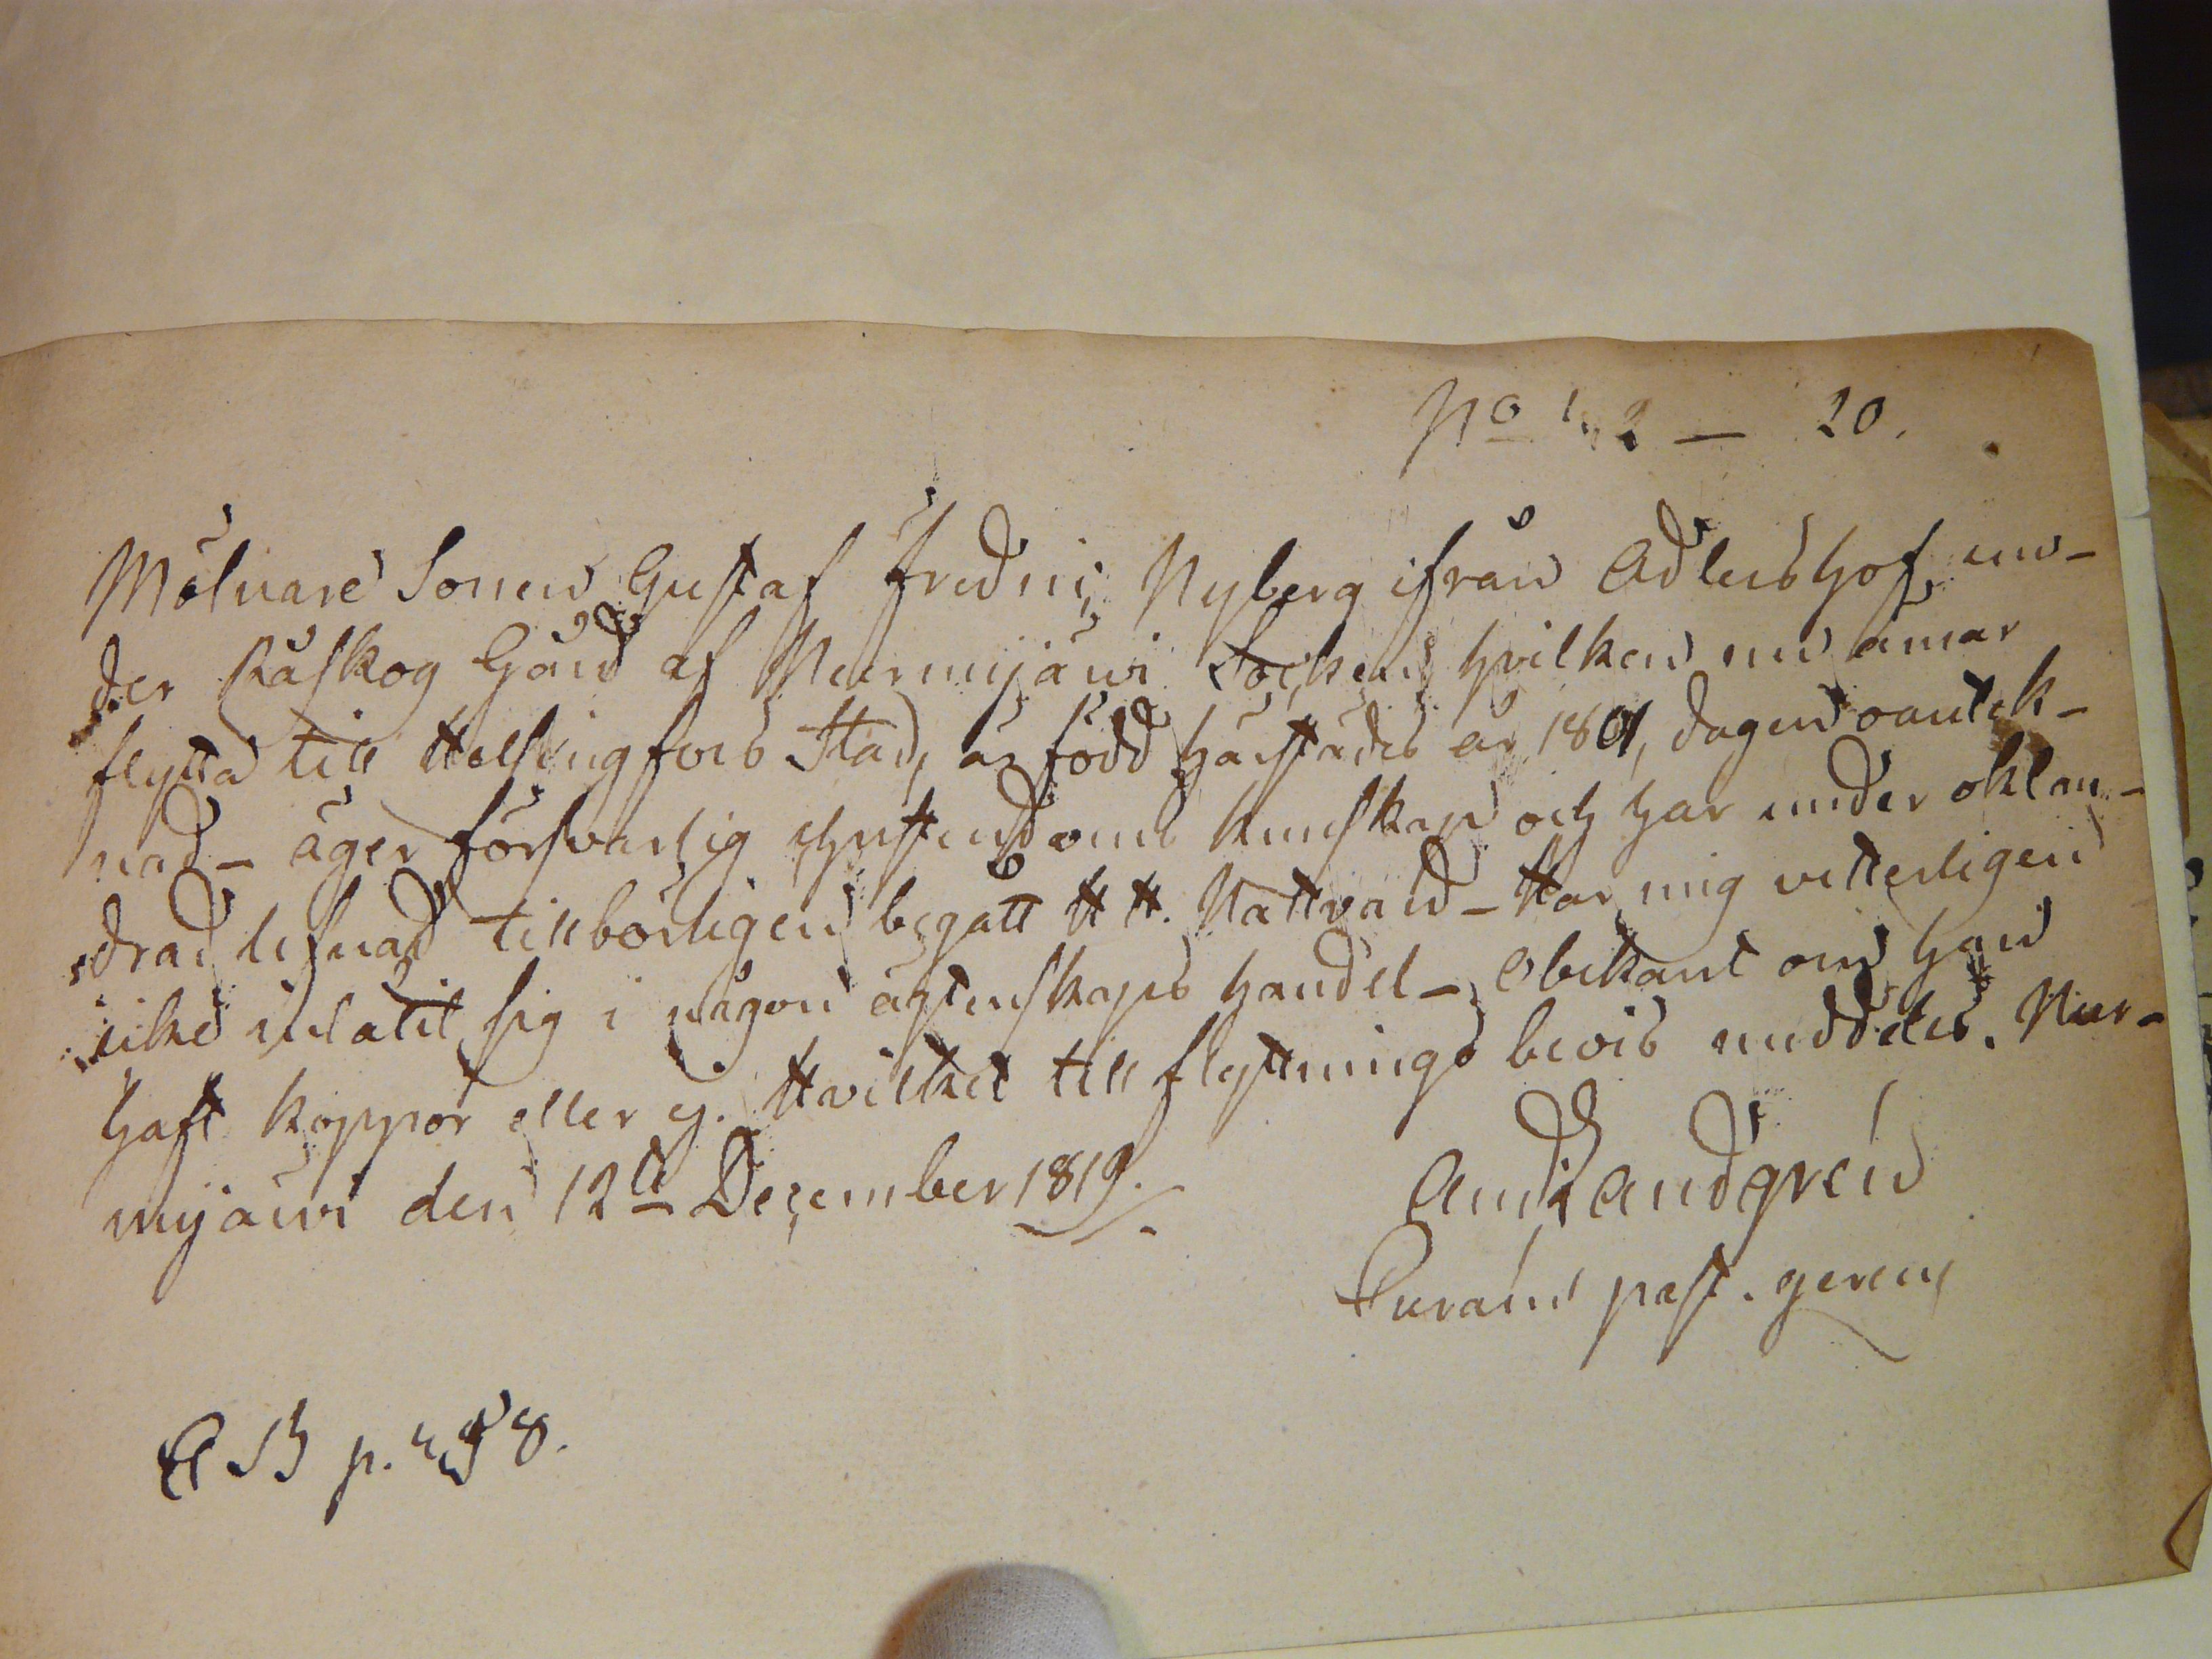 No 12 — 20.
Mölnare Sonen Gustaf Fredric Nyberg ifrån Adlershof un-
der Råskog Gård af Nurmijärvi Socken, hvilken nu ärnar
flytta till Helsingfors Stad, är född härstädes år 1801, dagen oantek-
nad — äger försvarlig christendoms kunskap och har under oklan-
drad lefnad tillbörligen begått H H. Nattvard — Har mig vetterligen
icke inlåtit sig i någon ägtenskaps handel — Obekant om han
haft koppor eller ej. Hvilket till flyttnings bevis meddeles. Nur-
mijärvi den 12te December 1819.
And Landgren
past. gerens
p.